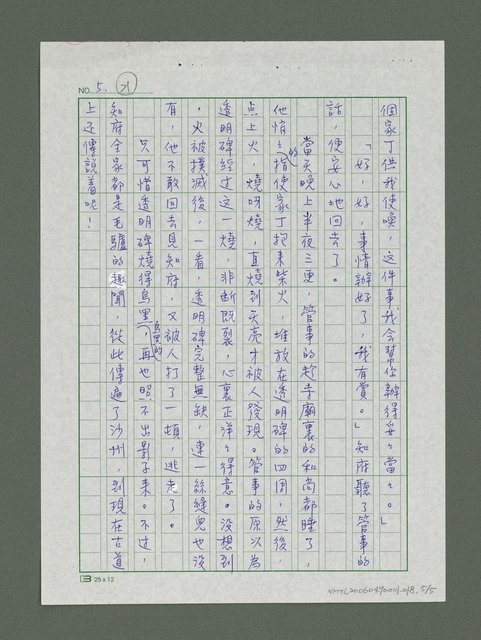 NO. 5. 21
個家丁供我使喚，這件事我會幫你辦得妥々當々。」
「好，好，事情辦好了，我有賞。」知府聽了管事的
話，便安心地回去了。
當天的晚上半夜三更，管事的趁寺廟裏的和尚都睡了，
他悄々指使家丁抱來柴火，堆放在透明碑的四周，然後，
点上火，燒呀燒，直燒到天亮才被人發現。管事的原以為
透明碑經过这一燒，非断既裂，心裏正洋々得意。没想到
，火被撲滅後，一看，透明碑完整無缺，連一絲縫兒也沒
有，他不敢回去見知府，又被人打了一頓，逃走了。
只可惜透明碑燒得烏黑，烏黑的，再也照不出影子來。不过，
知府全家都是毛驢的趣聞，從此傳遍了沙州，到現在古道
上还傳說着呢！
25×12
NMTL20060490001.018, 5/5